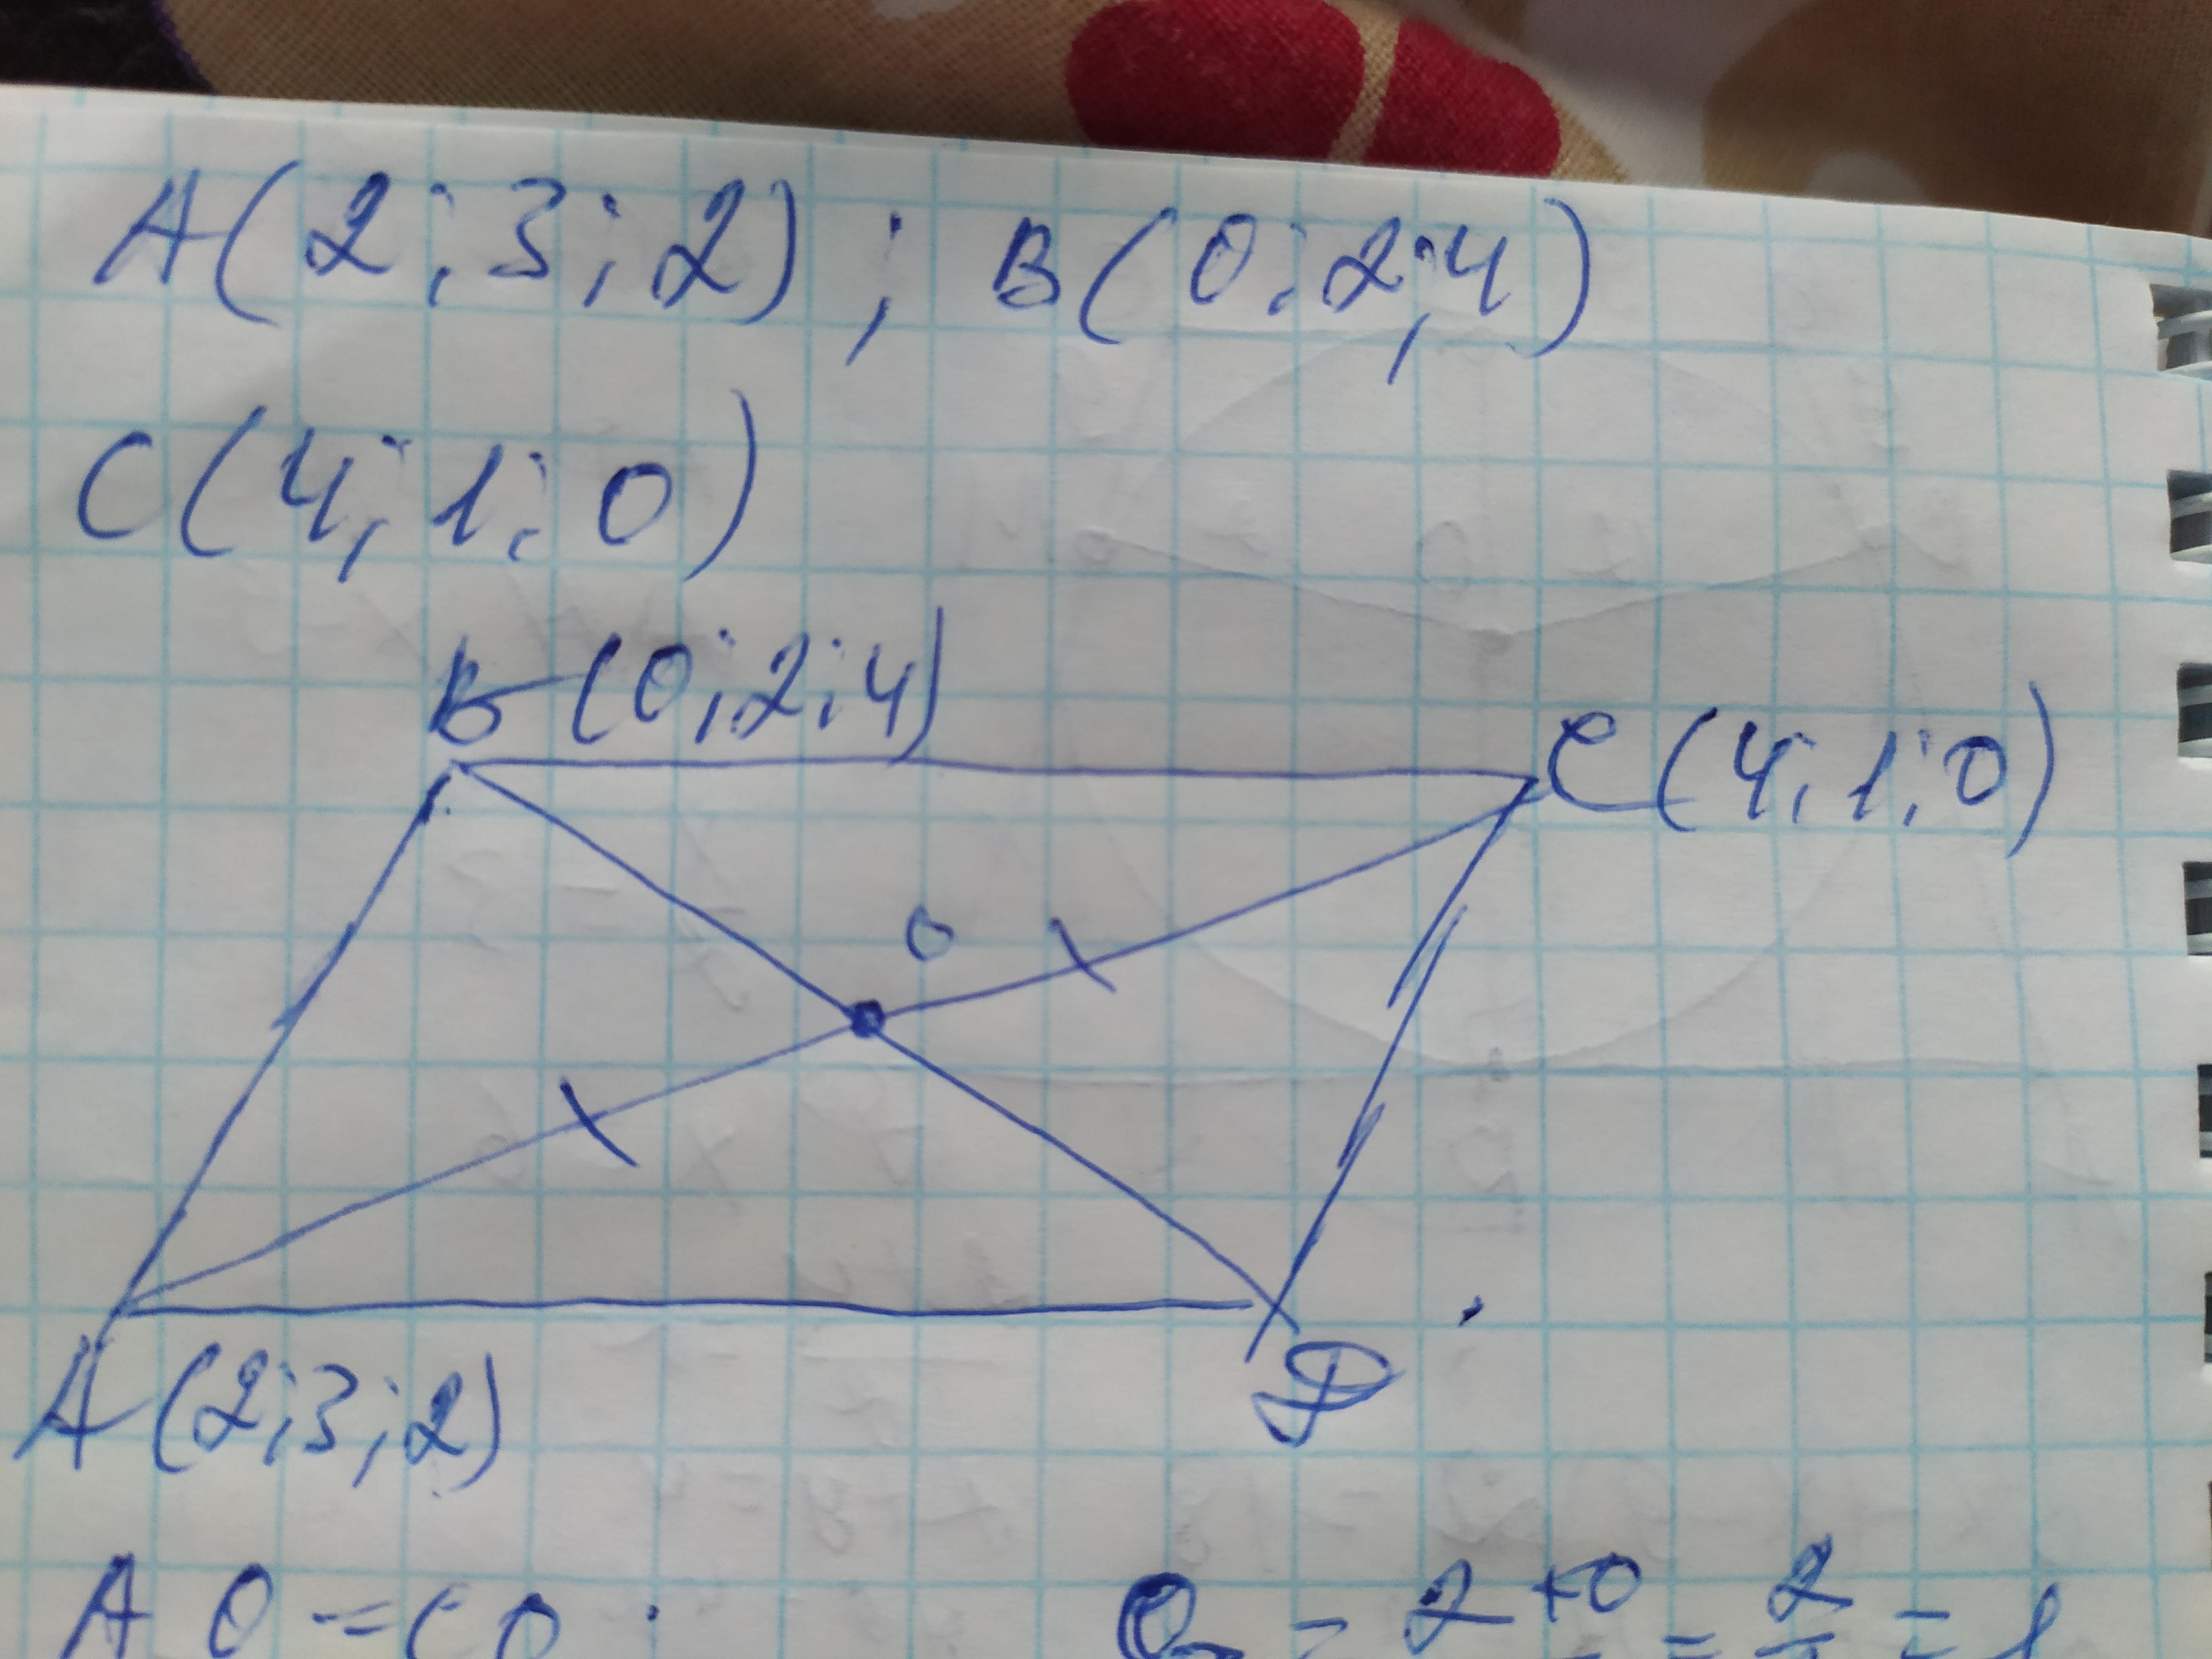 A(2;3;2); B(0;2;4)
C(4;1;0)
B(0;2;4)
C(4;1;0)
O
A(2;3;2)
D
AO=CO.
= 2+0 = 2 = 1